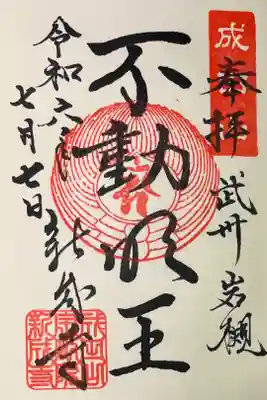 成
奉拝
武州岩槻
不動明王
令和六年
七月七日
新成寺